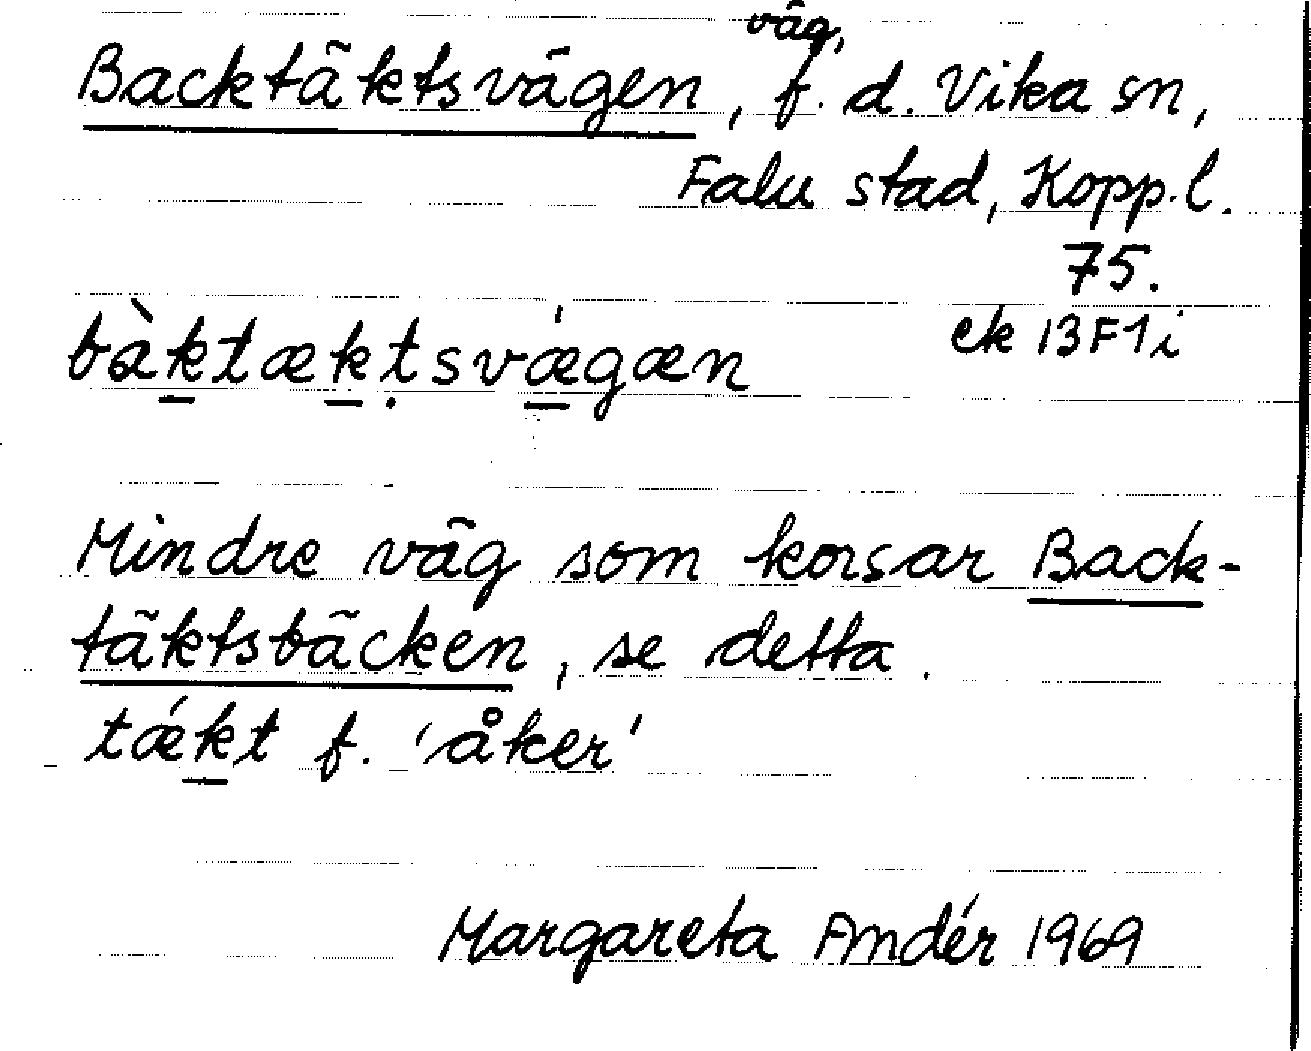 väg,
Backtäktsvägen, f. d. Vika sn,
Falu stad, Kopp. l.
75.
ek 13F1i
bàktæktsvǽgæn
Mindre väg som korsar Back-
täktsbäcken, se detta.
tǽkt f. 'åker'
Margareta Andér 1969